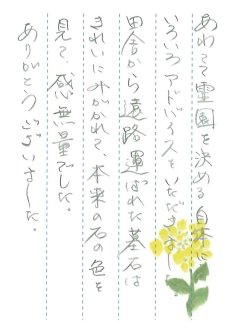 あわてて霊園を決める自体に
いろいろアドバイスをいただきました。
田舎から遠路運ばれた墓石は
きれいにみがかれて、本来の石の色を
見て、感無量でした。
ありがとうございました。